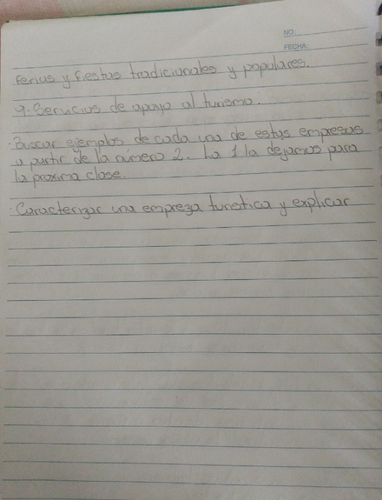 NO:
FECHA:
Ferias y fiestas tradicionales y populares.
9. Servicios de apoyo al turismo.
· Buscar ejemplos de cada una de estas empresas
a partir de la número 2. La 1 la dejamos para
la proxima clase.
· Caracterizar una empreza turistica y explicar